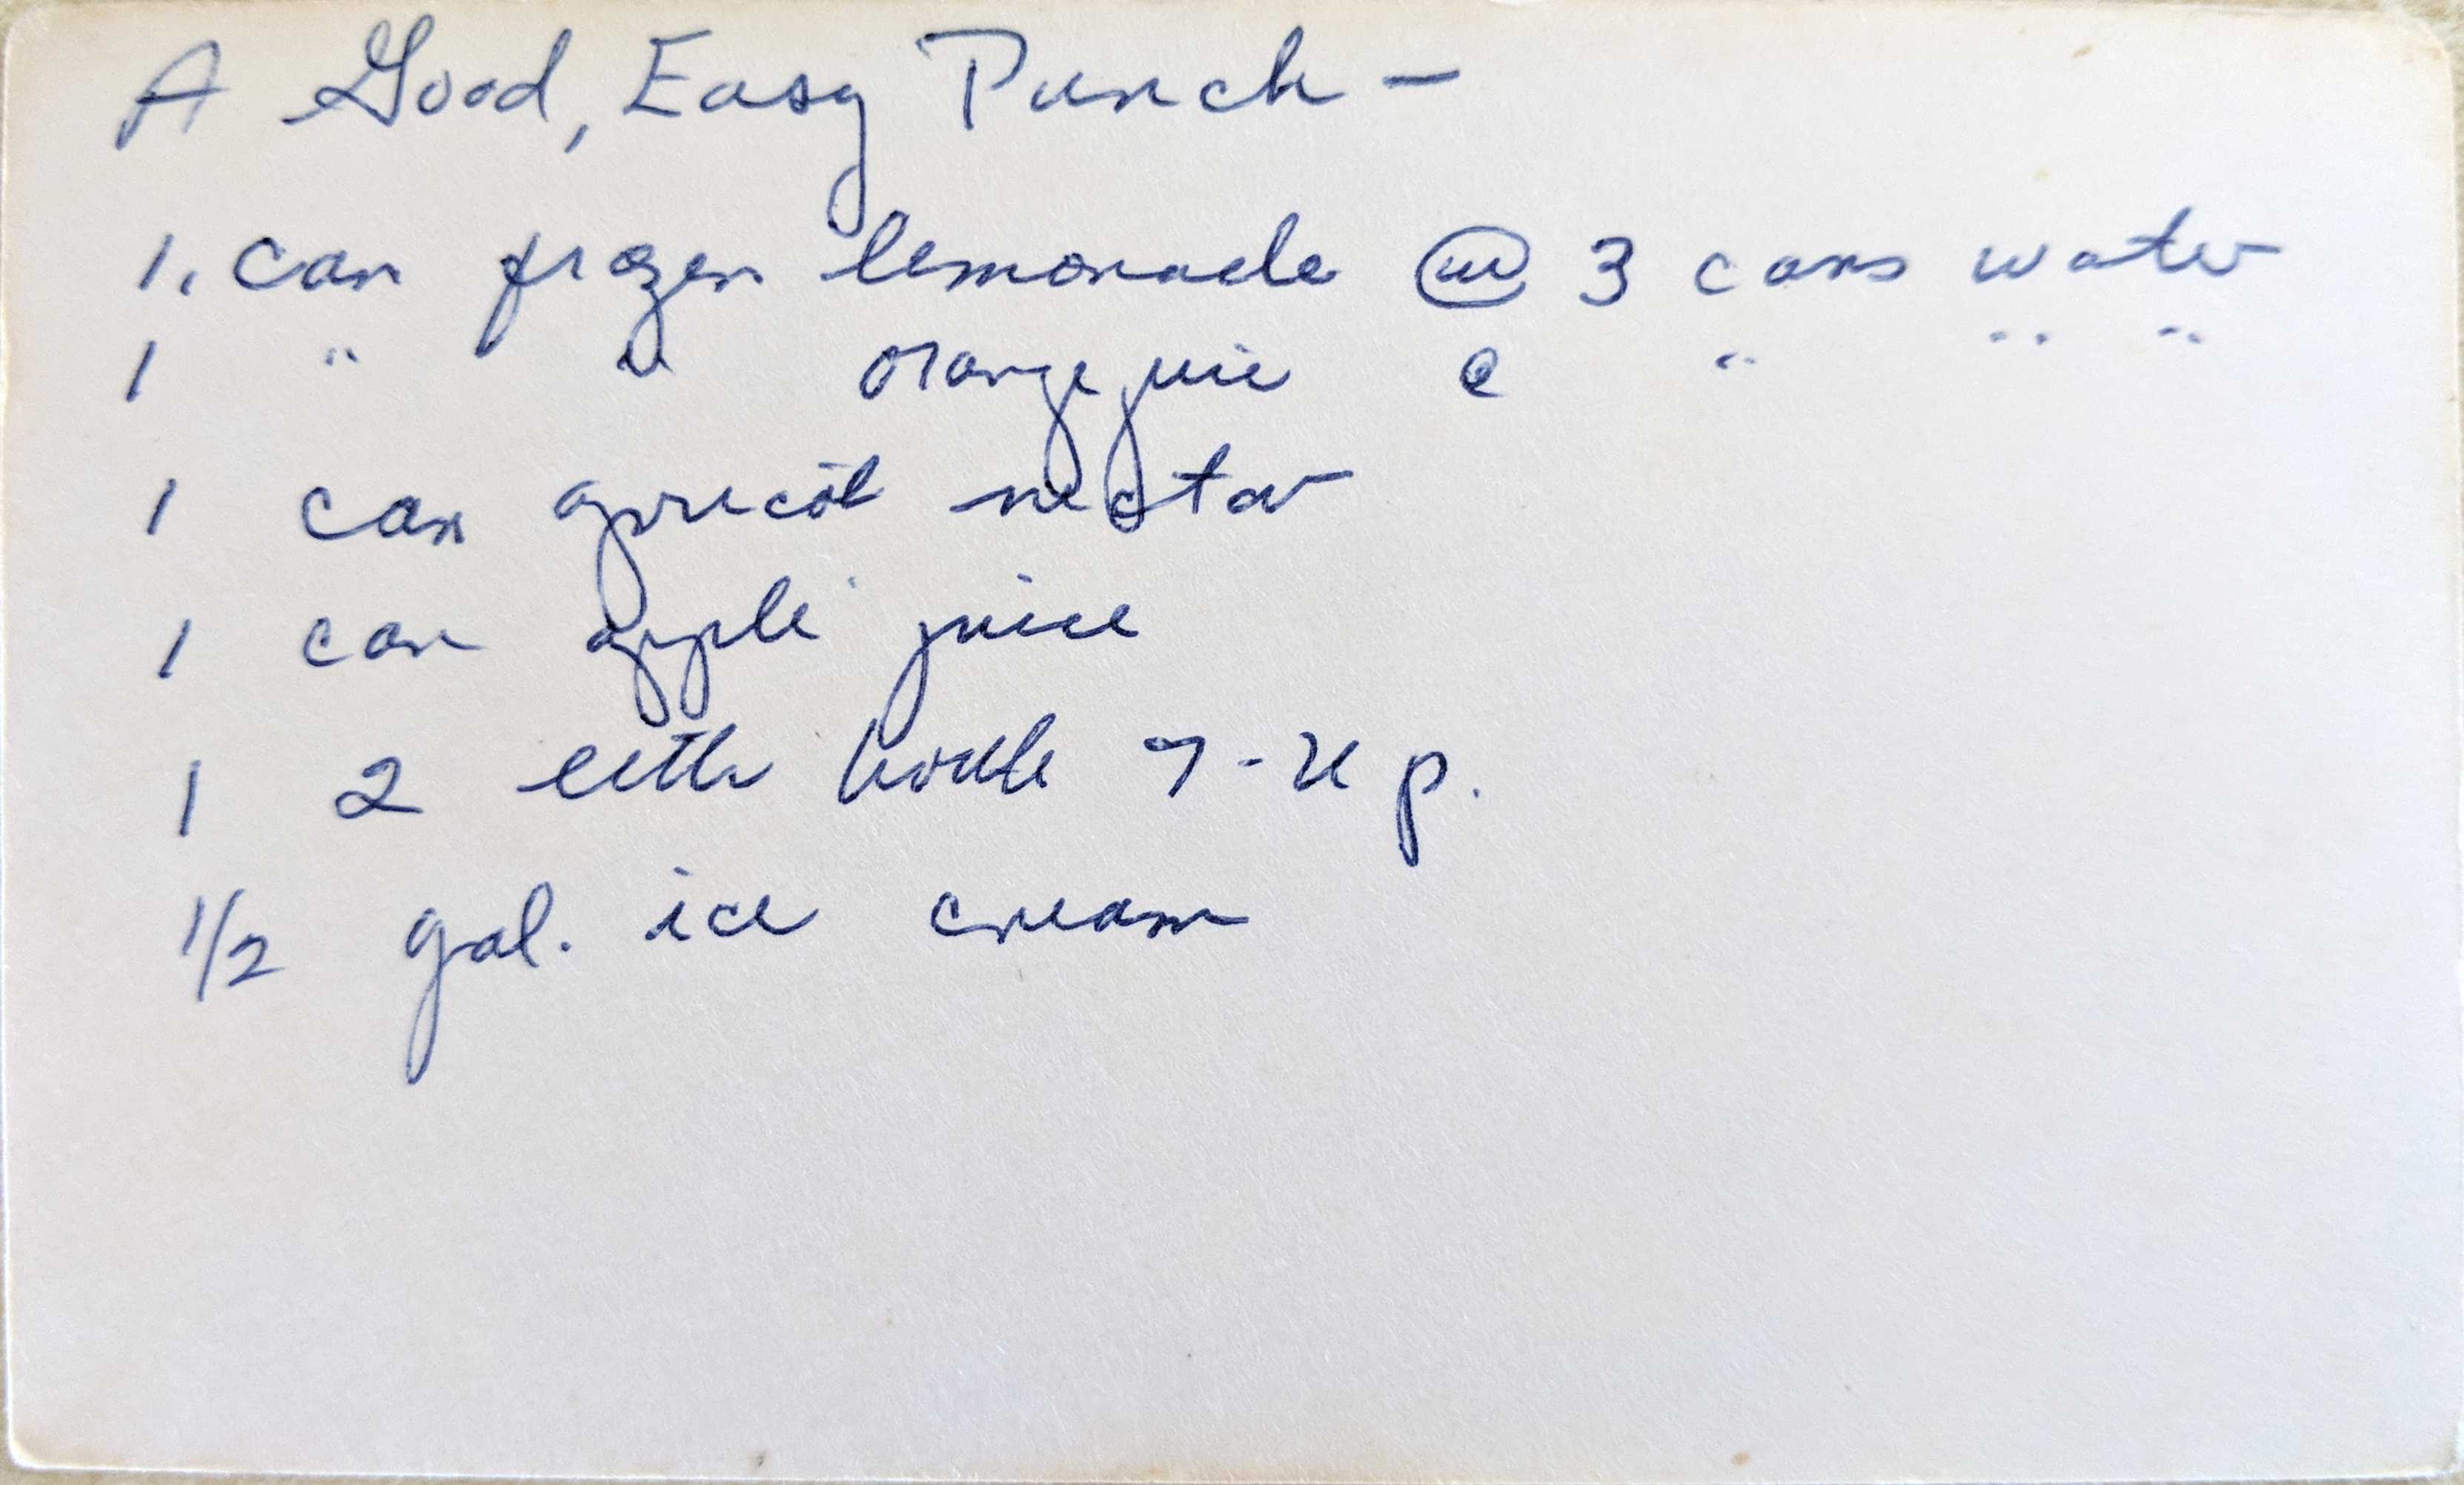 A Good, Easy Punch -
1. can frozen lemonade @ 3 cans water
1 " " orange juice @ " " "
1 can apricot nectar
1 can apple juice
1 2 liter bottle 7-up.
1/2 gal. ice cream